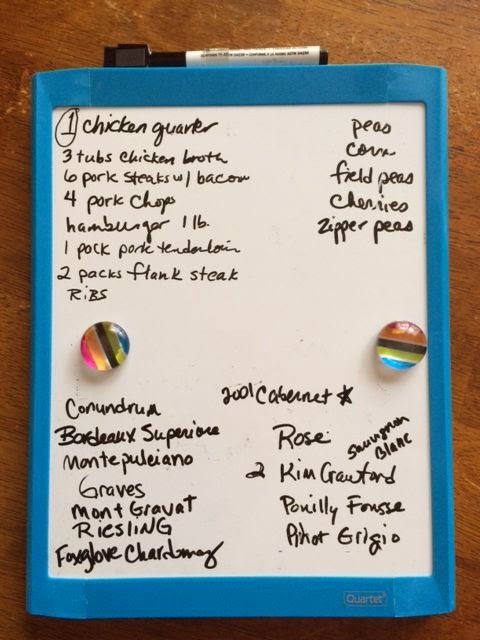 1 chicken quarter
3 tubs chicken broth
6 pork steaks w/ bacon
4 pork chops
hamburger 1 lb.
1 pack pork tenderloin
2 packs flank steak
RiBS
peas
corn
field peas
cherries
zipper peas
Conundrum
Bordeaux Superiore
Montepulciano
Graves
Mont Gravat
RIESLING
Foxglove Chardonnay
2001 Cabernet *
Rose
Sauvignon Blanc
2 Kim Crawford
Pouilly Fousse
Pinot Grigio
Quartet